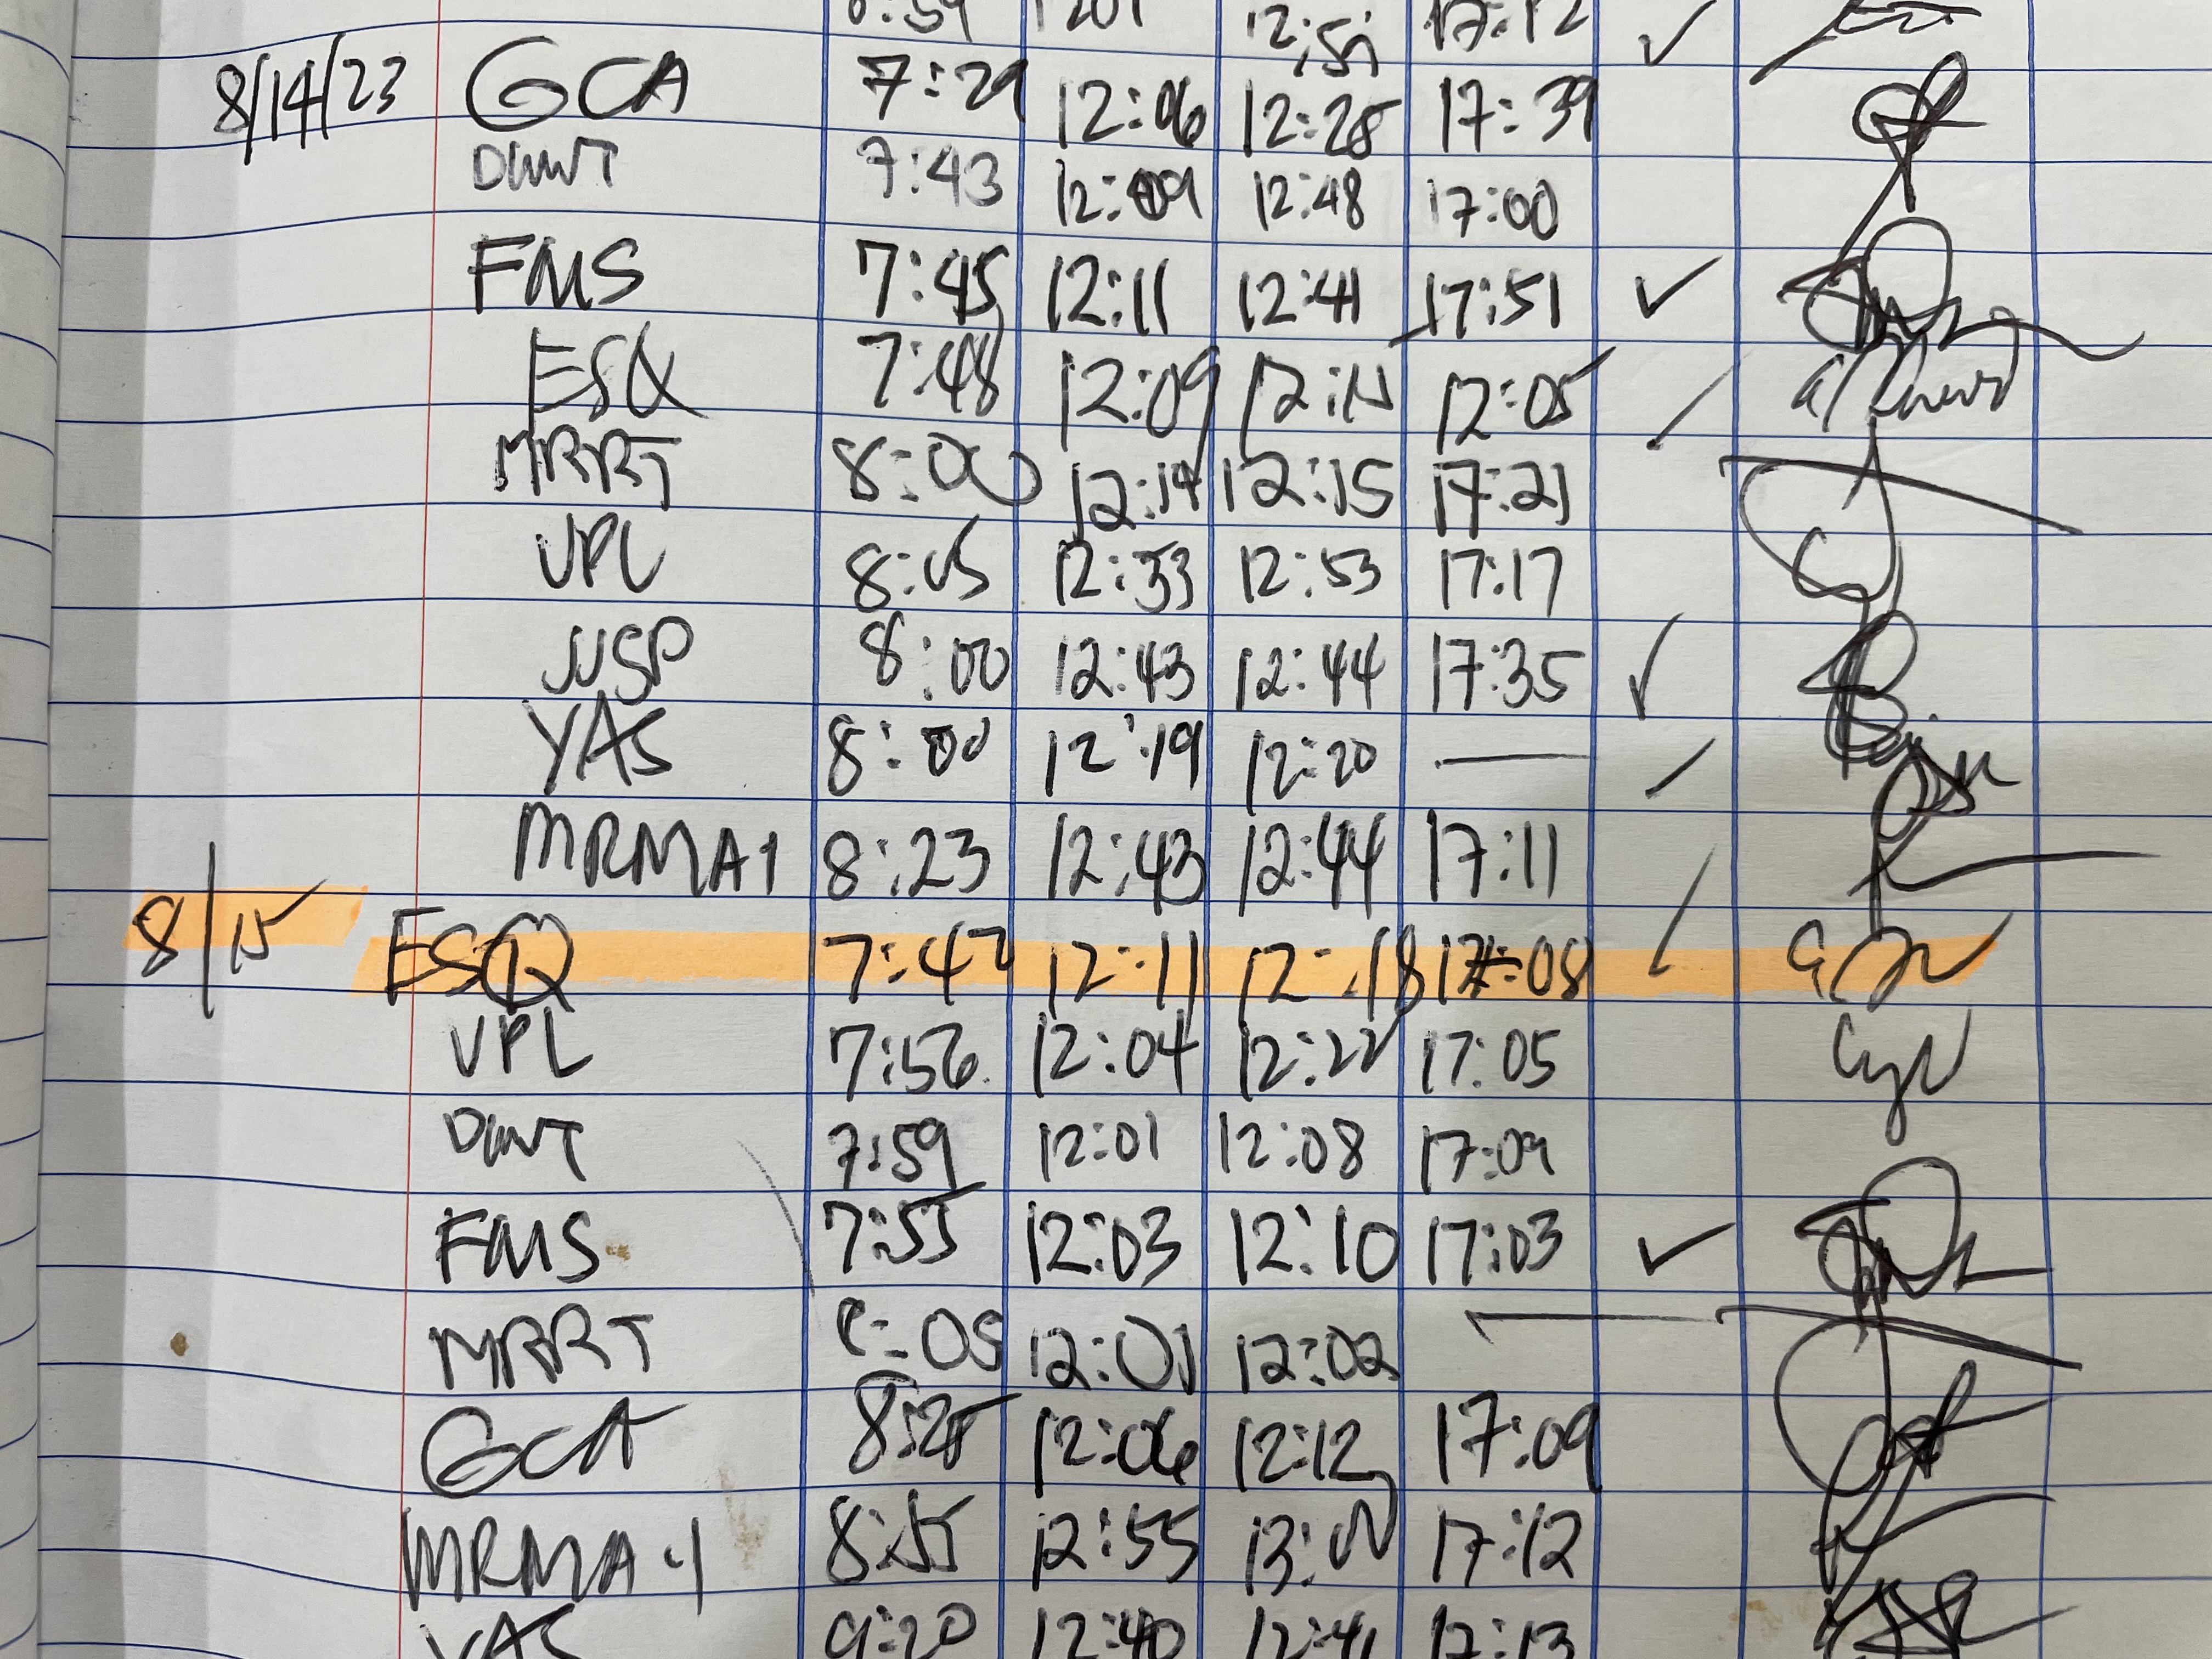 12:51 17:12 ✓
8/14/23 GCA 7:29 12:06 12:28 17:39
DWNT 7:43 12:09 12:48 17:00
FMS 7:45 12:11 12:41 17:51 ✓
ESQ 7:48 12:09 12:05
MRRT 8:00 12:14 12:15 17:21
VPL 8:05 12:33 12:53 17:17
JJSP 8:00 12:43 12:44 17:35 ✓
YAS 8:00 12:19 12:20 —
MRMA1 8:23 12:43 12:44 17:11
8/15 ESQ 7:47 12:11 12:18 17:08
VPL 7:56 12:04 12:22 17:05
DWNT 7:59 12:01 12:08 17:09
FMS 7:55 12:03 12:10 17:03 ✓
MRRT 8:05 12:01 12:02 —
GCA 8:25 12:06 12:12 17:09
MRMA-1 8:55 12:55 13:00 17:12
YAS 9:20 12:40 12:41 17:13